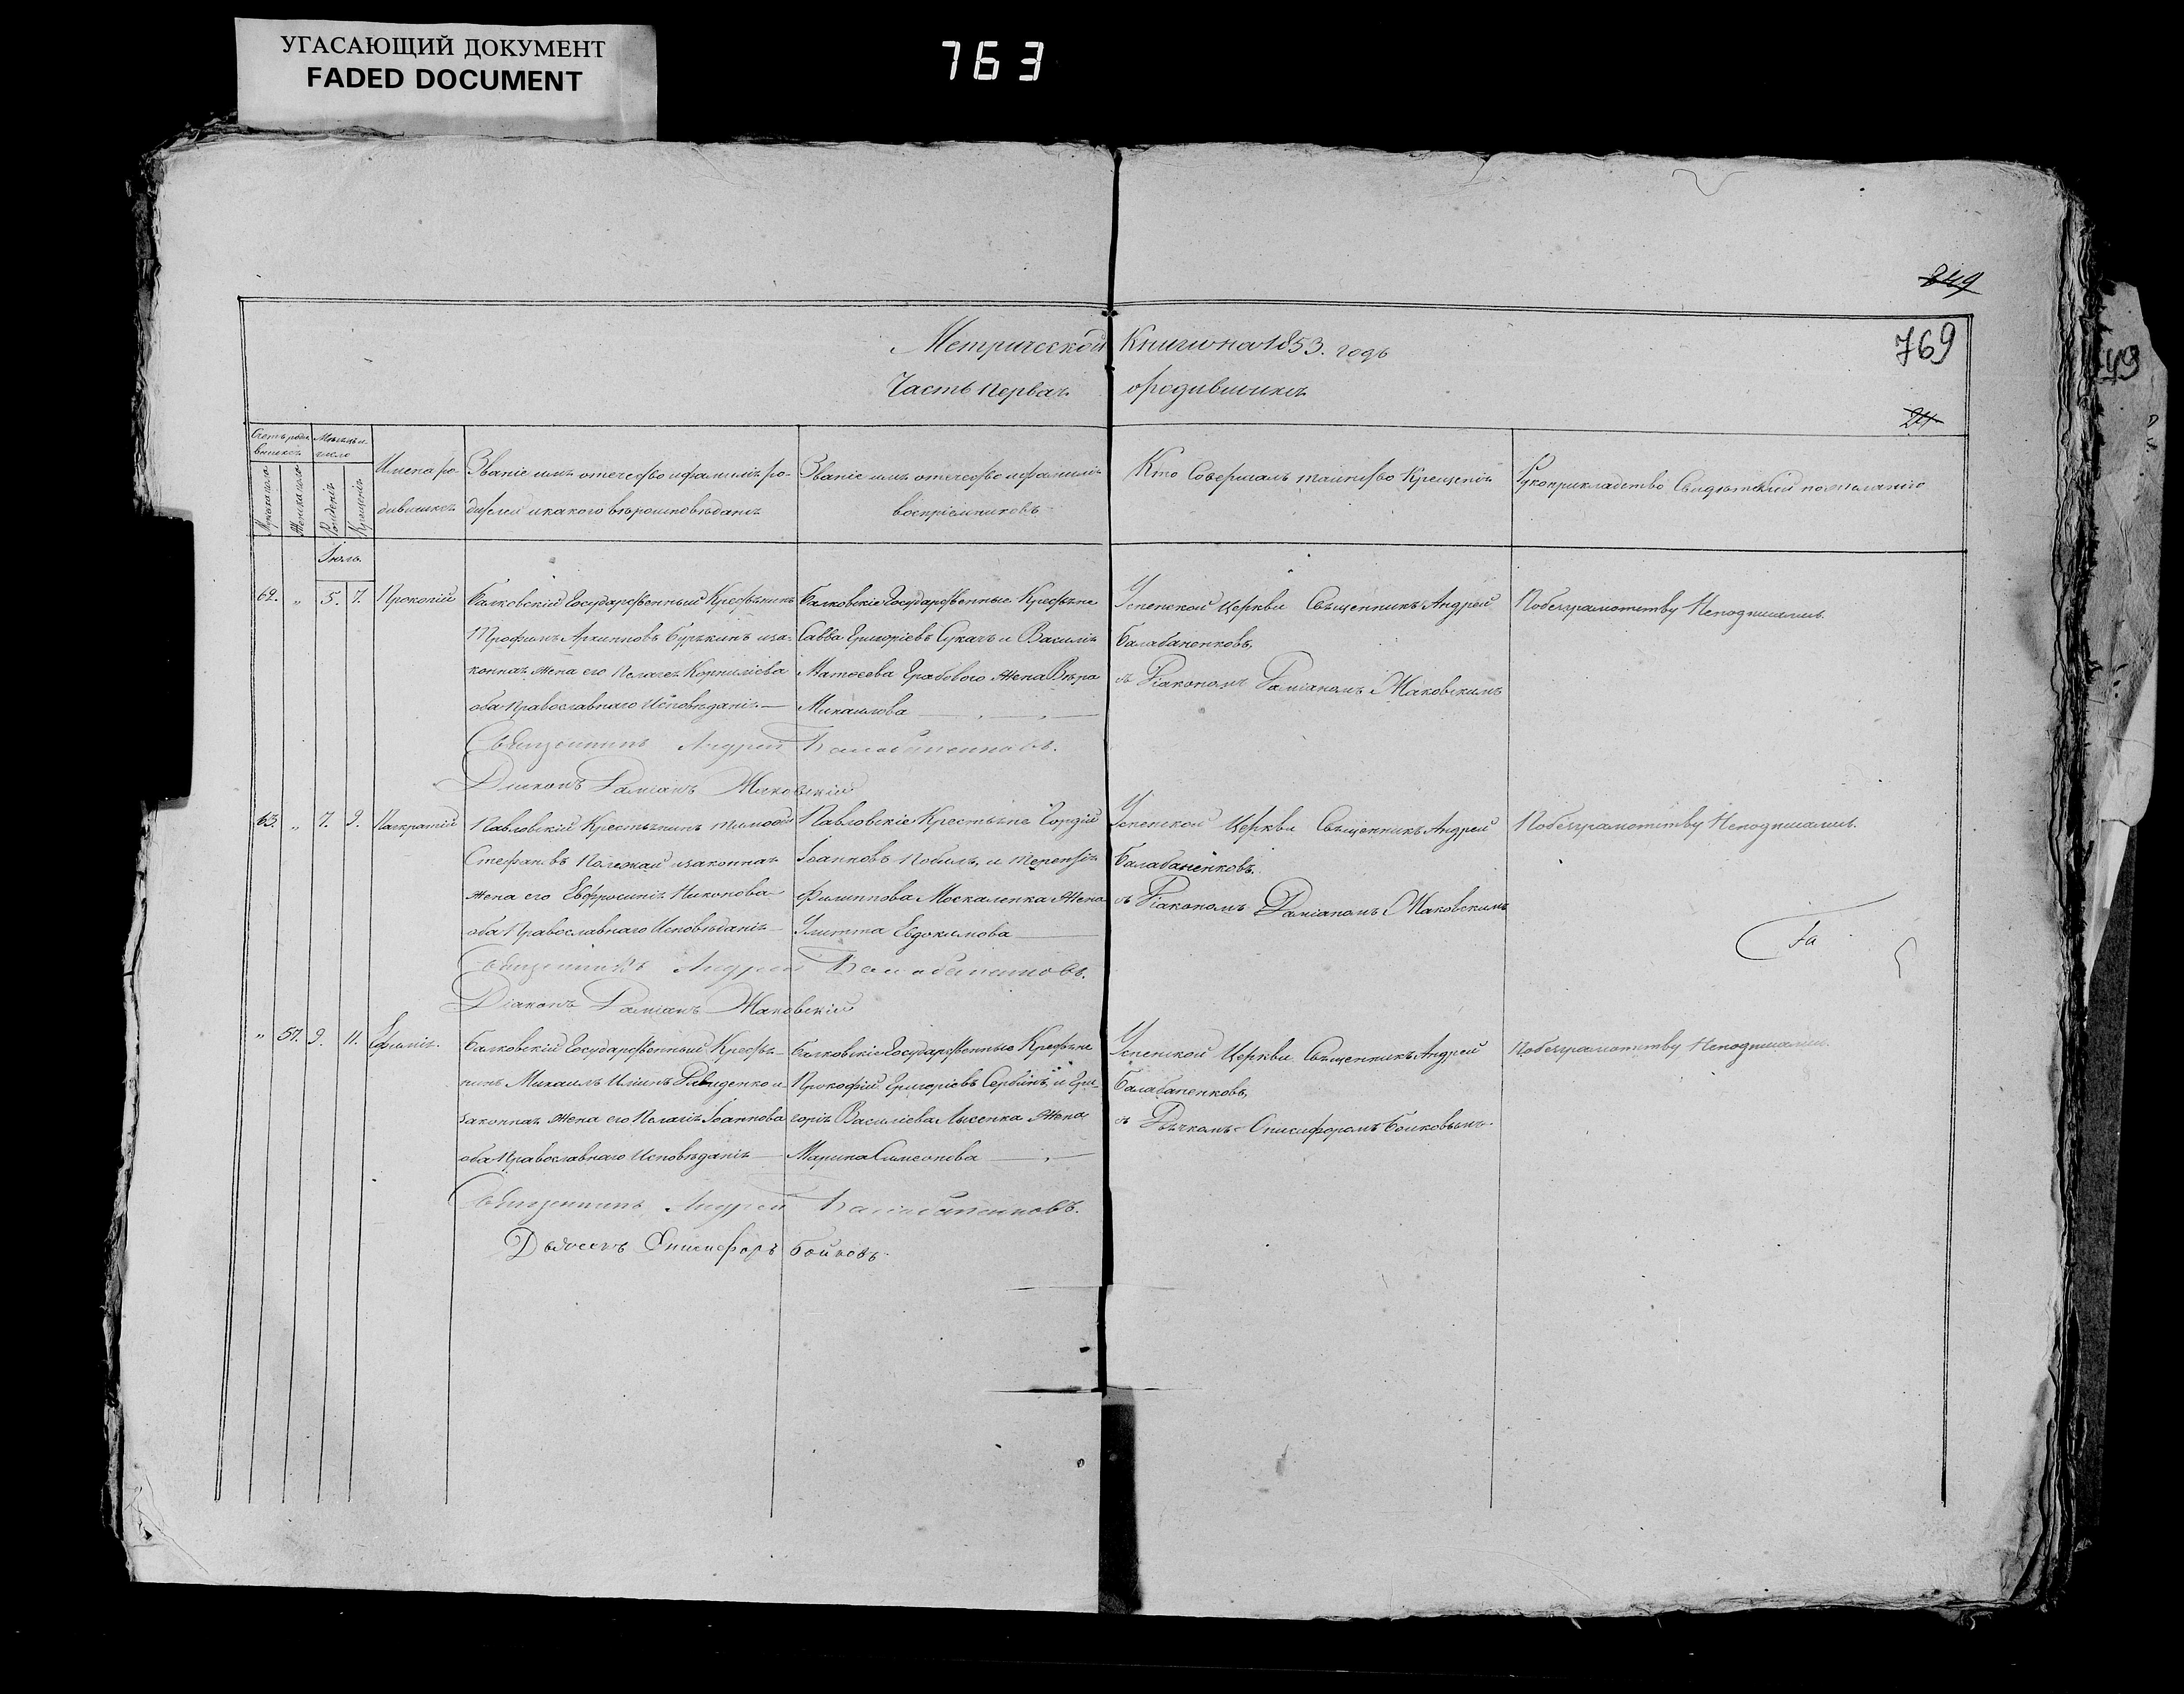 УГАСАЮЩИЙ ДОКУМЕНТ
FADED DOCUMENT
763
249
769
24
Метрической Книги на 1853. годъ
Часть первая. о родившихся
Счетъ родившихся
Мѣсяцъ и число
Мужеска пола
Женска пола
Рожденія
Крещенія
Имена родившихся
Званіе имя отечество и фамилія родителей и какого вѣроисповѣданія
Званіе имя отечество и фамилія воспріемниковъ
Кто совершалъ таинство Крещенія
Рукоприкладство Свидѣтелей по желанію
Іюль.
62. „ 5. 7. Прокопій
Балковскій Государственный Крестьянинъ
Трофимъ Архиповъ Бурѣкинъ и за-
конная жена его Пелагея Корниліева
оба Православнаго Исповѣданія —
Балковскіе Государственные Крестьяне
Савва Григоріевъ Сукачъ и Василія
Матѳеева Грабового жена Вѣра
Михаилова
Успенской Церкви Священникъ Андрей
Балабаненковъ,
съ Діакономъ Даміаномъ Маковскимъ
По безграмотству Неподписались.
Священникъ Андрей Балабаненковъ.
Діаконъ Даміанъ Маковскій
63. „ 7. 9. Панкратій
Павловскій Крестьянинъ Тимоѳей
Стефановъ Полежай и законная
жена его Евфросинія Никонова
оба Православнаго Исповѣданія —
Павловскіе Крестьяне Гордій
Іоанновъ Кобилъ, и Терентія
Филиппова Москаленка жена
Улитта Евдокимова
Успенской Церкви Священникъ Андрей
Балабаненковъ.
съ Діакономъ Даміаномъ Маковскимъ
По безграмотству Неподписались.
Священникъ Андрей Балабаненковъ.
Діаконъ Даміанъ Маковскій
„ 57. 9. 11. Ефимія.
Балковскій Государственный Кресть-
янинъ Михаилъ Илiинъ Давиденко и
законная жена его Пелагія Іоаннова
оба Православнаго Исповѣданія —
Балковскіе Государственные Крестьяне
Прокофій Григоріевъ Сербинъ, и Гри-
горія Василіева Лысенка жена
Марина Симеонова
Успенской Церкви Священникъ Андрей
Балабаненковъ,
съ Дьячкомъ Онисифоромъ Бойковымъ.
По безграмотству Неподписались.
Священникъ Андрей Балабаненковъ.
Дьячокъ Онисифоръ Бойковъ.